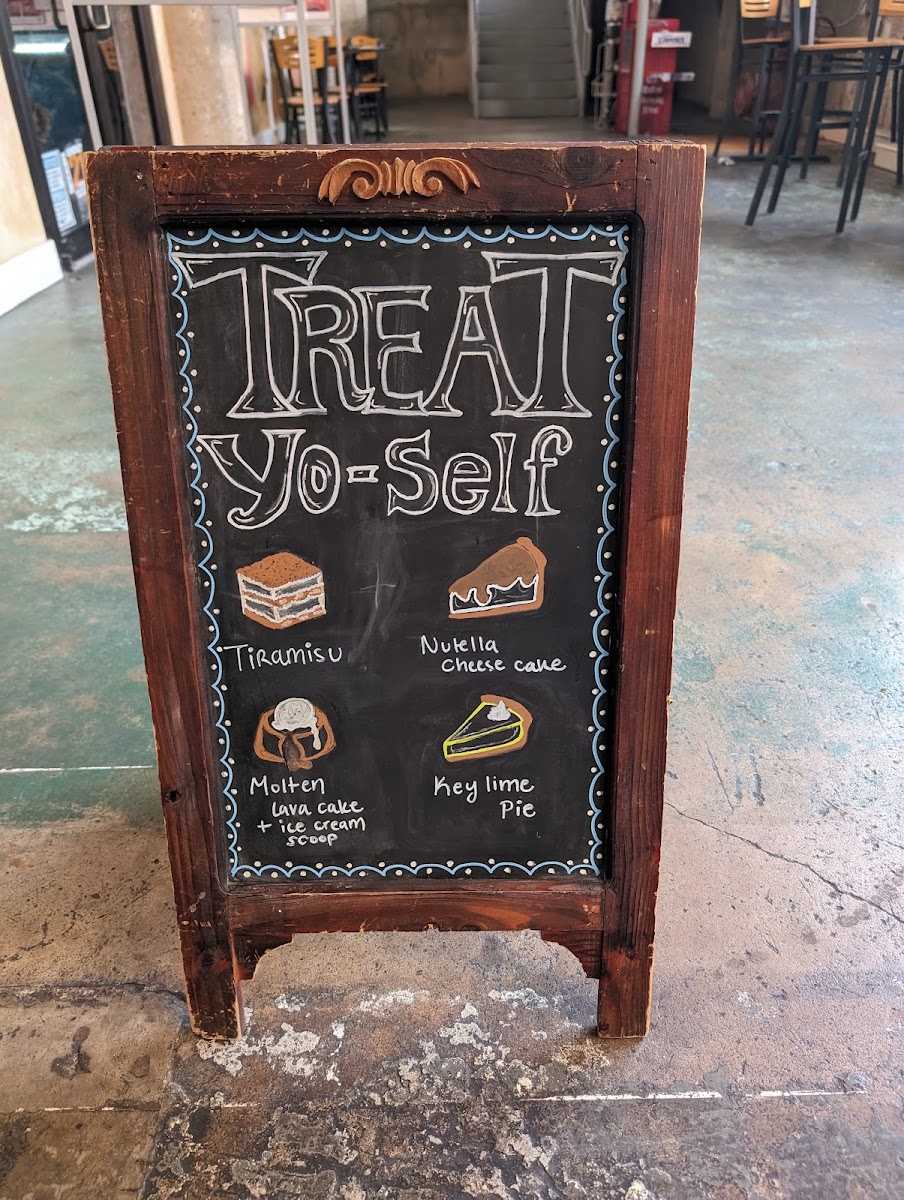 TREAT
Yo-Self
Tiramisu
Nutella
Cheese cake
Molten
lava cake
+ ice cream
scoop
Key lime
Pie